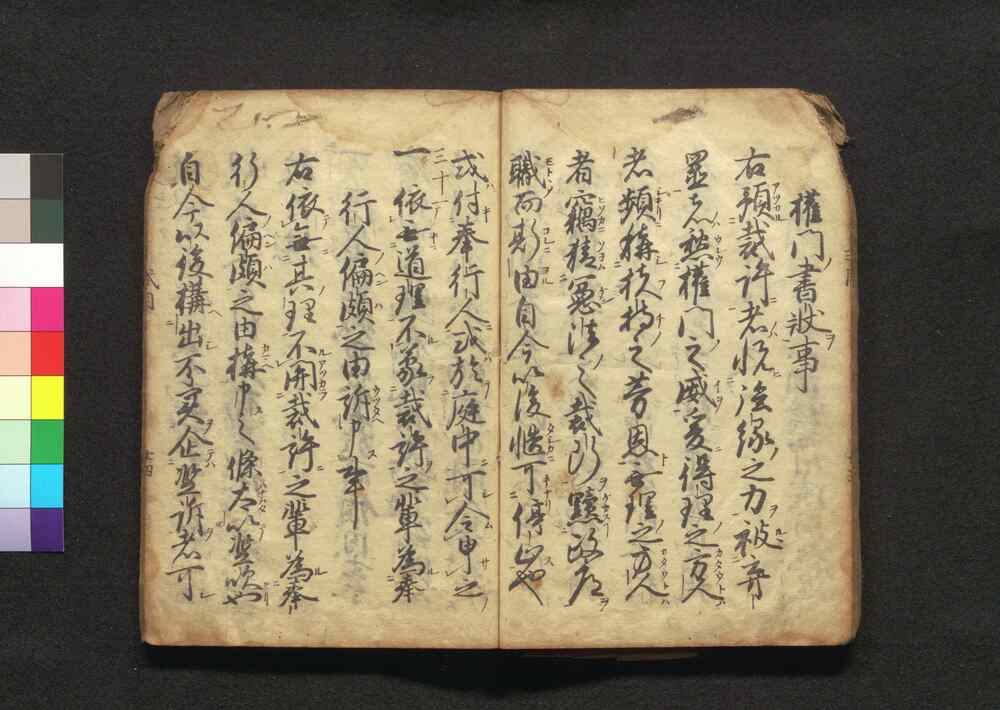 權門書狀事
右預裁許者悦強縁之力被弃
置者愁權門之威爰得理之方人
者頻稱扶持之芳恩無理之方人
者竊猜憲法之裁断黷政道
職而斯由自今以後慥可停止也
或付奉行人或於庭中可令申之
三十一
一依無道理不蒙裁許之輩為奉
行人偏頗之由訴申事
右依無其理不関裁許之輩為奉
行人偏頗之由構申之條太以濫吹也
自今以後構出不実企濫訴者可